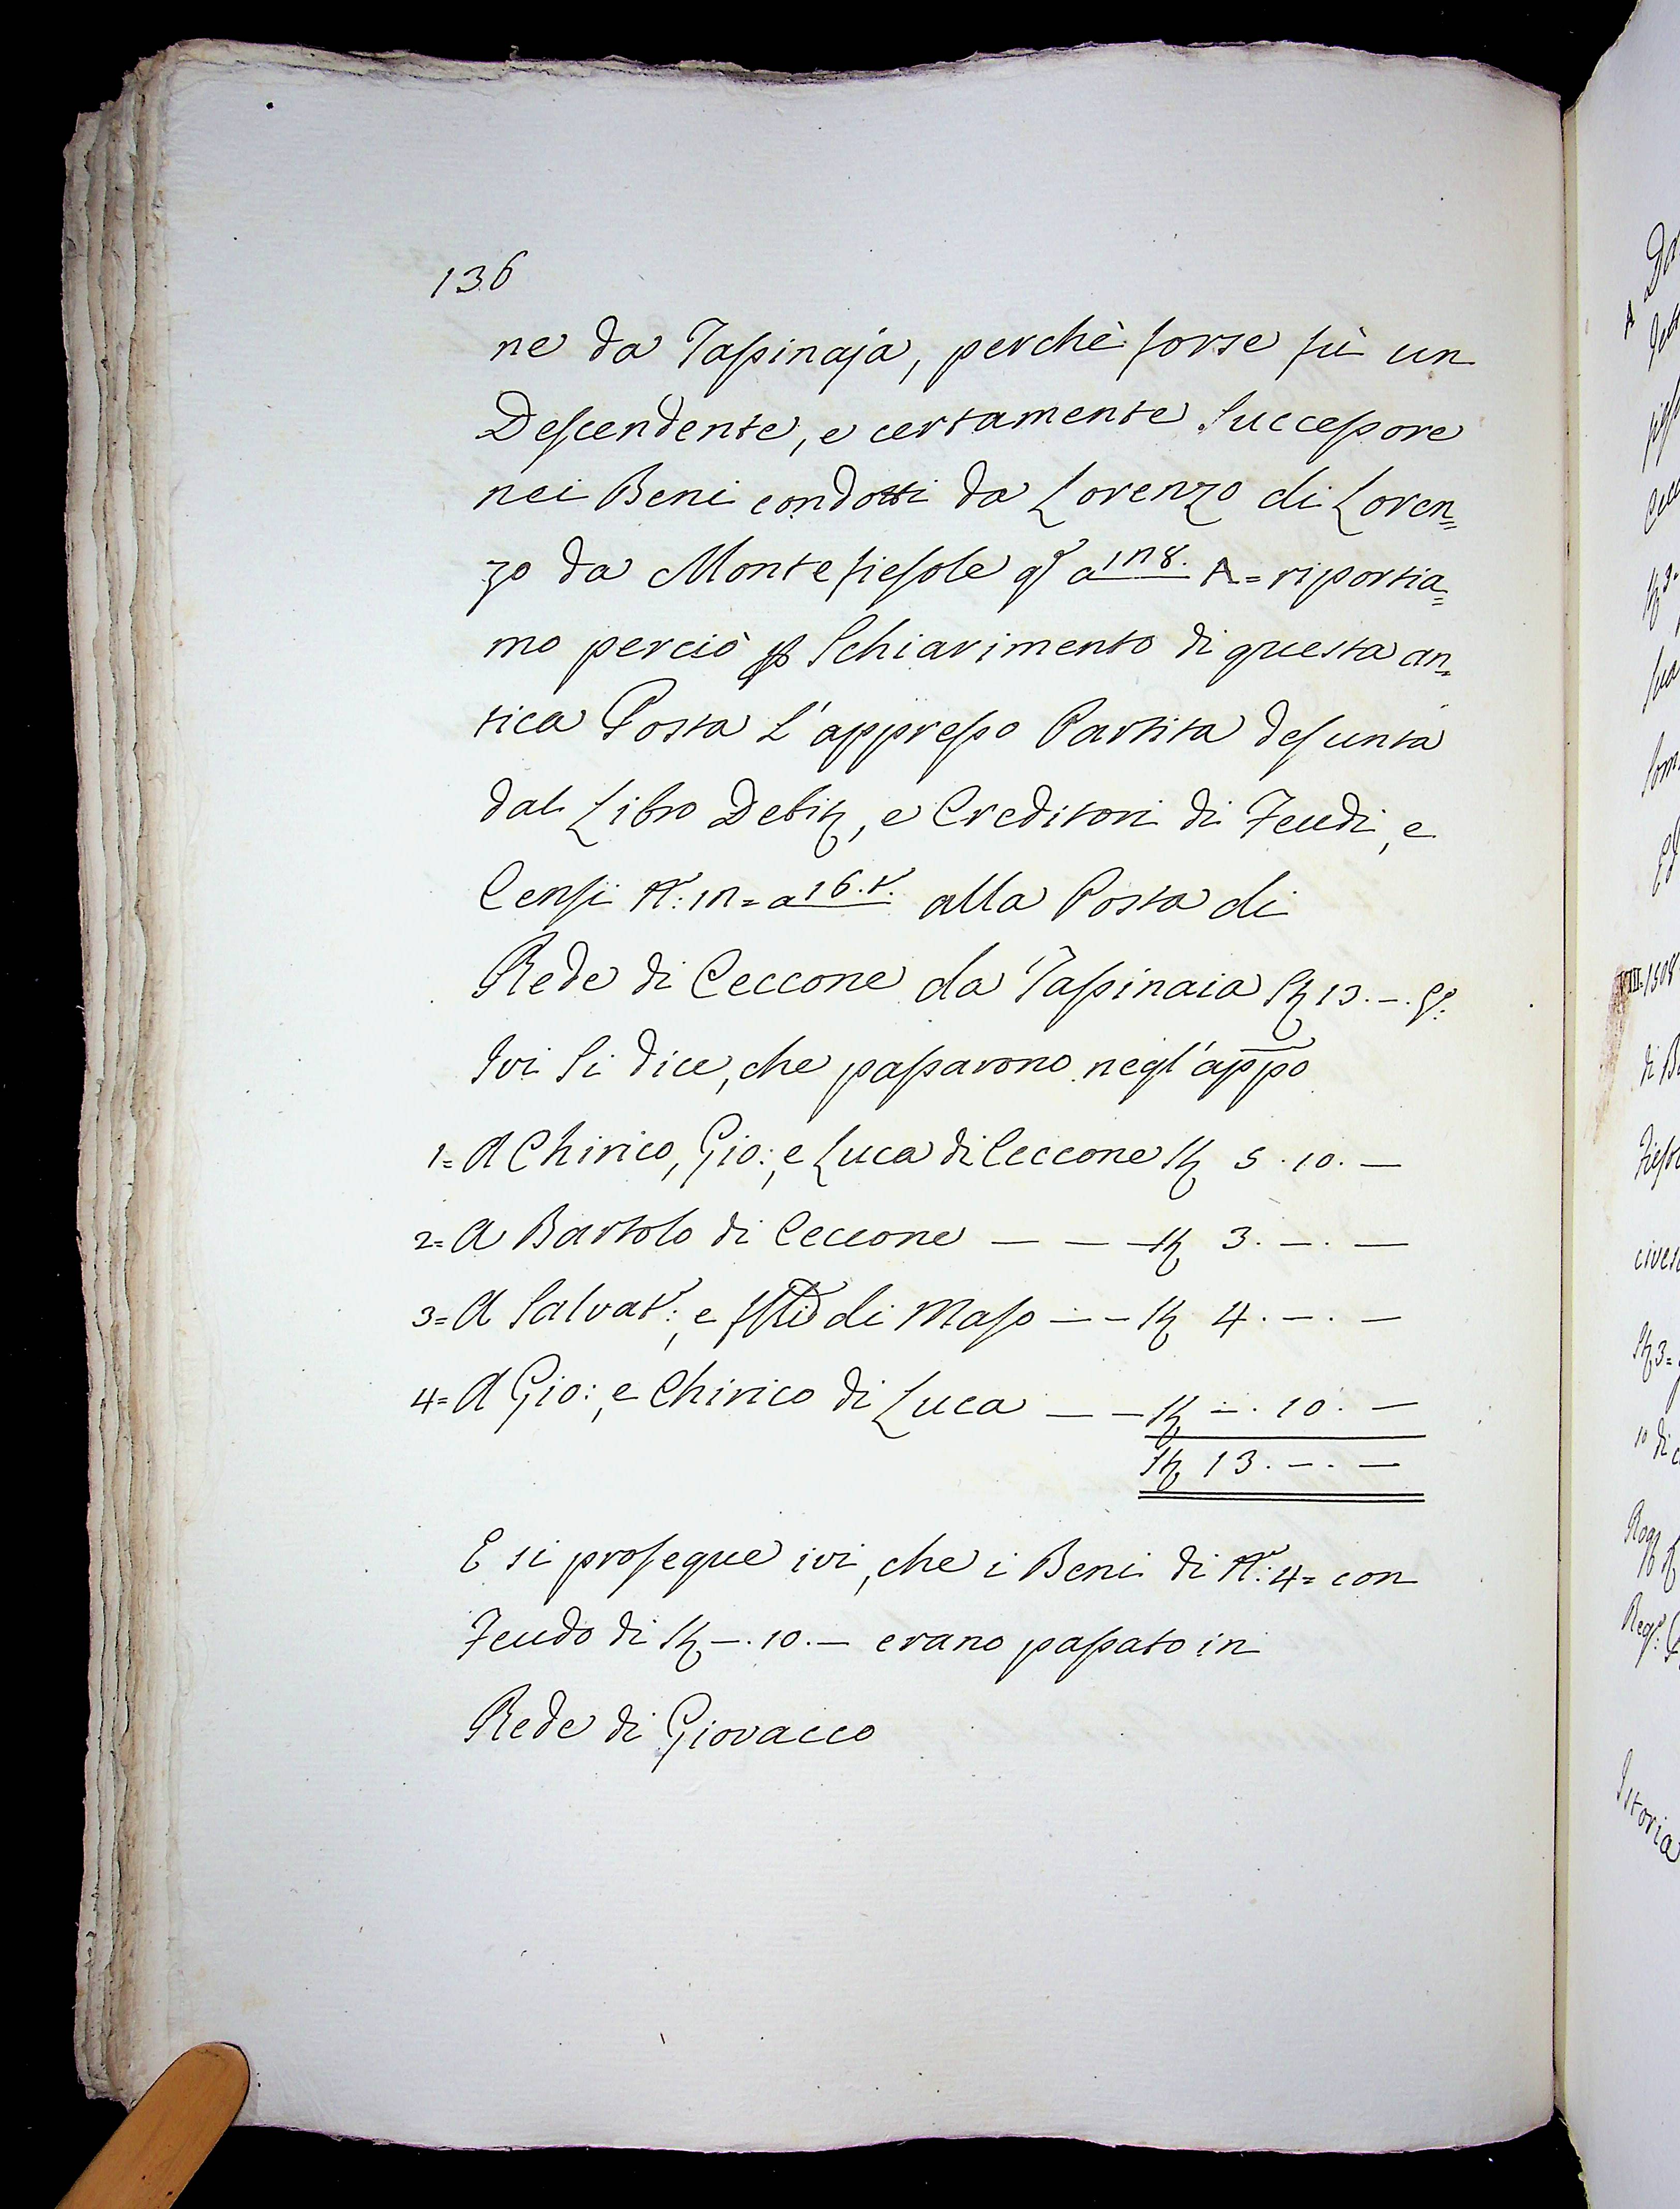 136
ne da Tassinaja, perchè forse fù un
Descendente, e certamente Successore
nei Beni condotti da Lorenzo di Loren=
zo da Montefiesole qſ a 178. A = riportia=
mo perciò ꝑ Schiarimento di questa an=
tica Posta l'appresso Partita desunta
dal Libro Debit, e Creditori di Feudi, e
Censi N.: 17 = a 16. t. alla Posta di
Rede di Ceccone da Tassinaia St 13. –.
Ivi Si dice, che passarono negl' appo
1= A Chirico, Gio:, e Luca di Ceccone St 5. 10. –
2= A Bartolo di Ceccone – – – St 3. –. –
3= A Salvat.:, e fſſi di Maso – – St 4. –. –
4= A Gio:, e Chirico di Luca – – St –. 10. –
St 13. –. –
E si prosegue ivi, che i Beni di N.: 4= con
Feudo di St –. 10. – erano passato in
Rede di Giovacco
VIII. 1508
Istoria